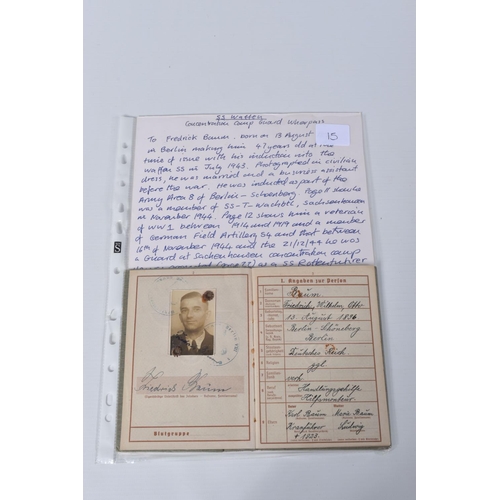 SS Waffen
Concentration Camp Guard Wehrpass
To Fredrick Baum. born on 13 August
in Berlin making him 47 years old at the
time of issue with his induction into the
Waffen SS in July 1943. Photographed in civilian
dress, he was married and a business assistant
before the war. He was inducted as part of the
Army Area 8 of Berlin - Schoenberg. Page 11 shows he
was a member of SS-T-Wachbtl, Sachsenhausen
in November 1944. Page 12 shows him a veteran
of WW1 between 1914 and 1919 and a member
of German Field Artillery 54 and that between
16th of November 1944 and the 21/12/44 he was
a Guard at Sachsenhausen concentration camp
as a SS Rottenfuhrer
15
Friedrich Baum
Blutgruppe
I. Angaben zur Person
Baum
Friedrich, Wilhelm Otto
13. August 1896
Berlin-Schöneberg
Berlin
Deutsches Reich
ggl.
verh.
Handlungsgehilfe
Karl Baum
Marie Baum
Ludwig